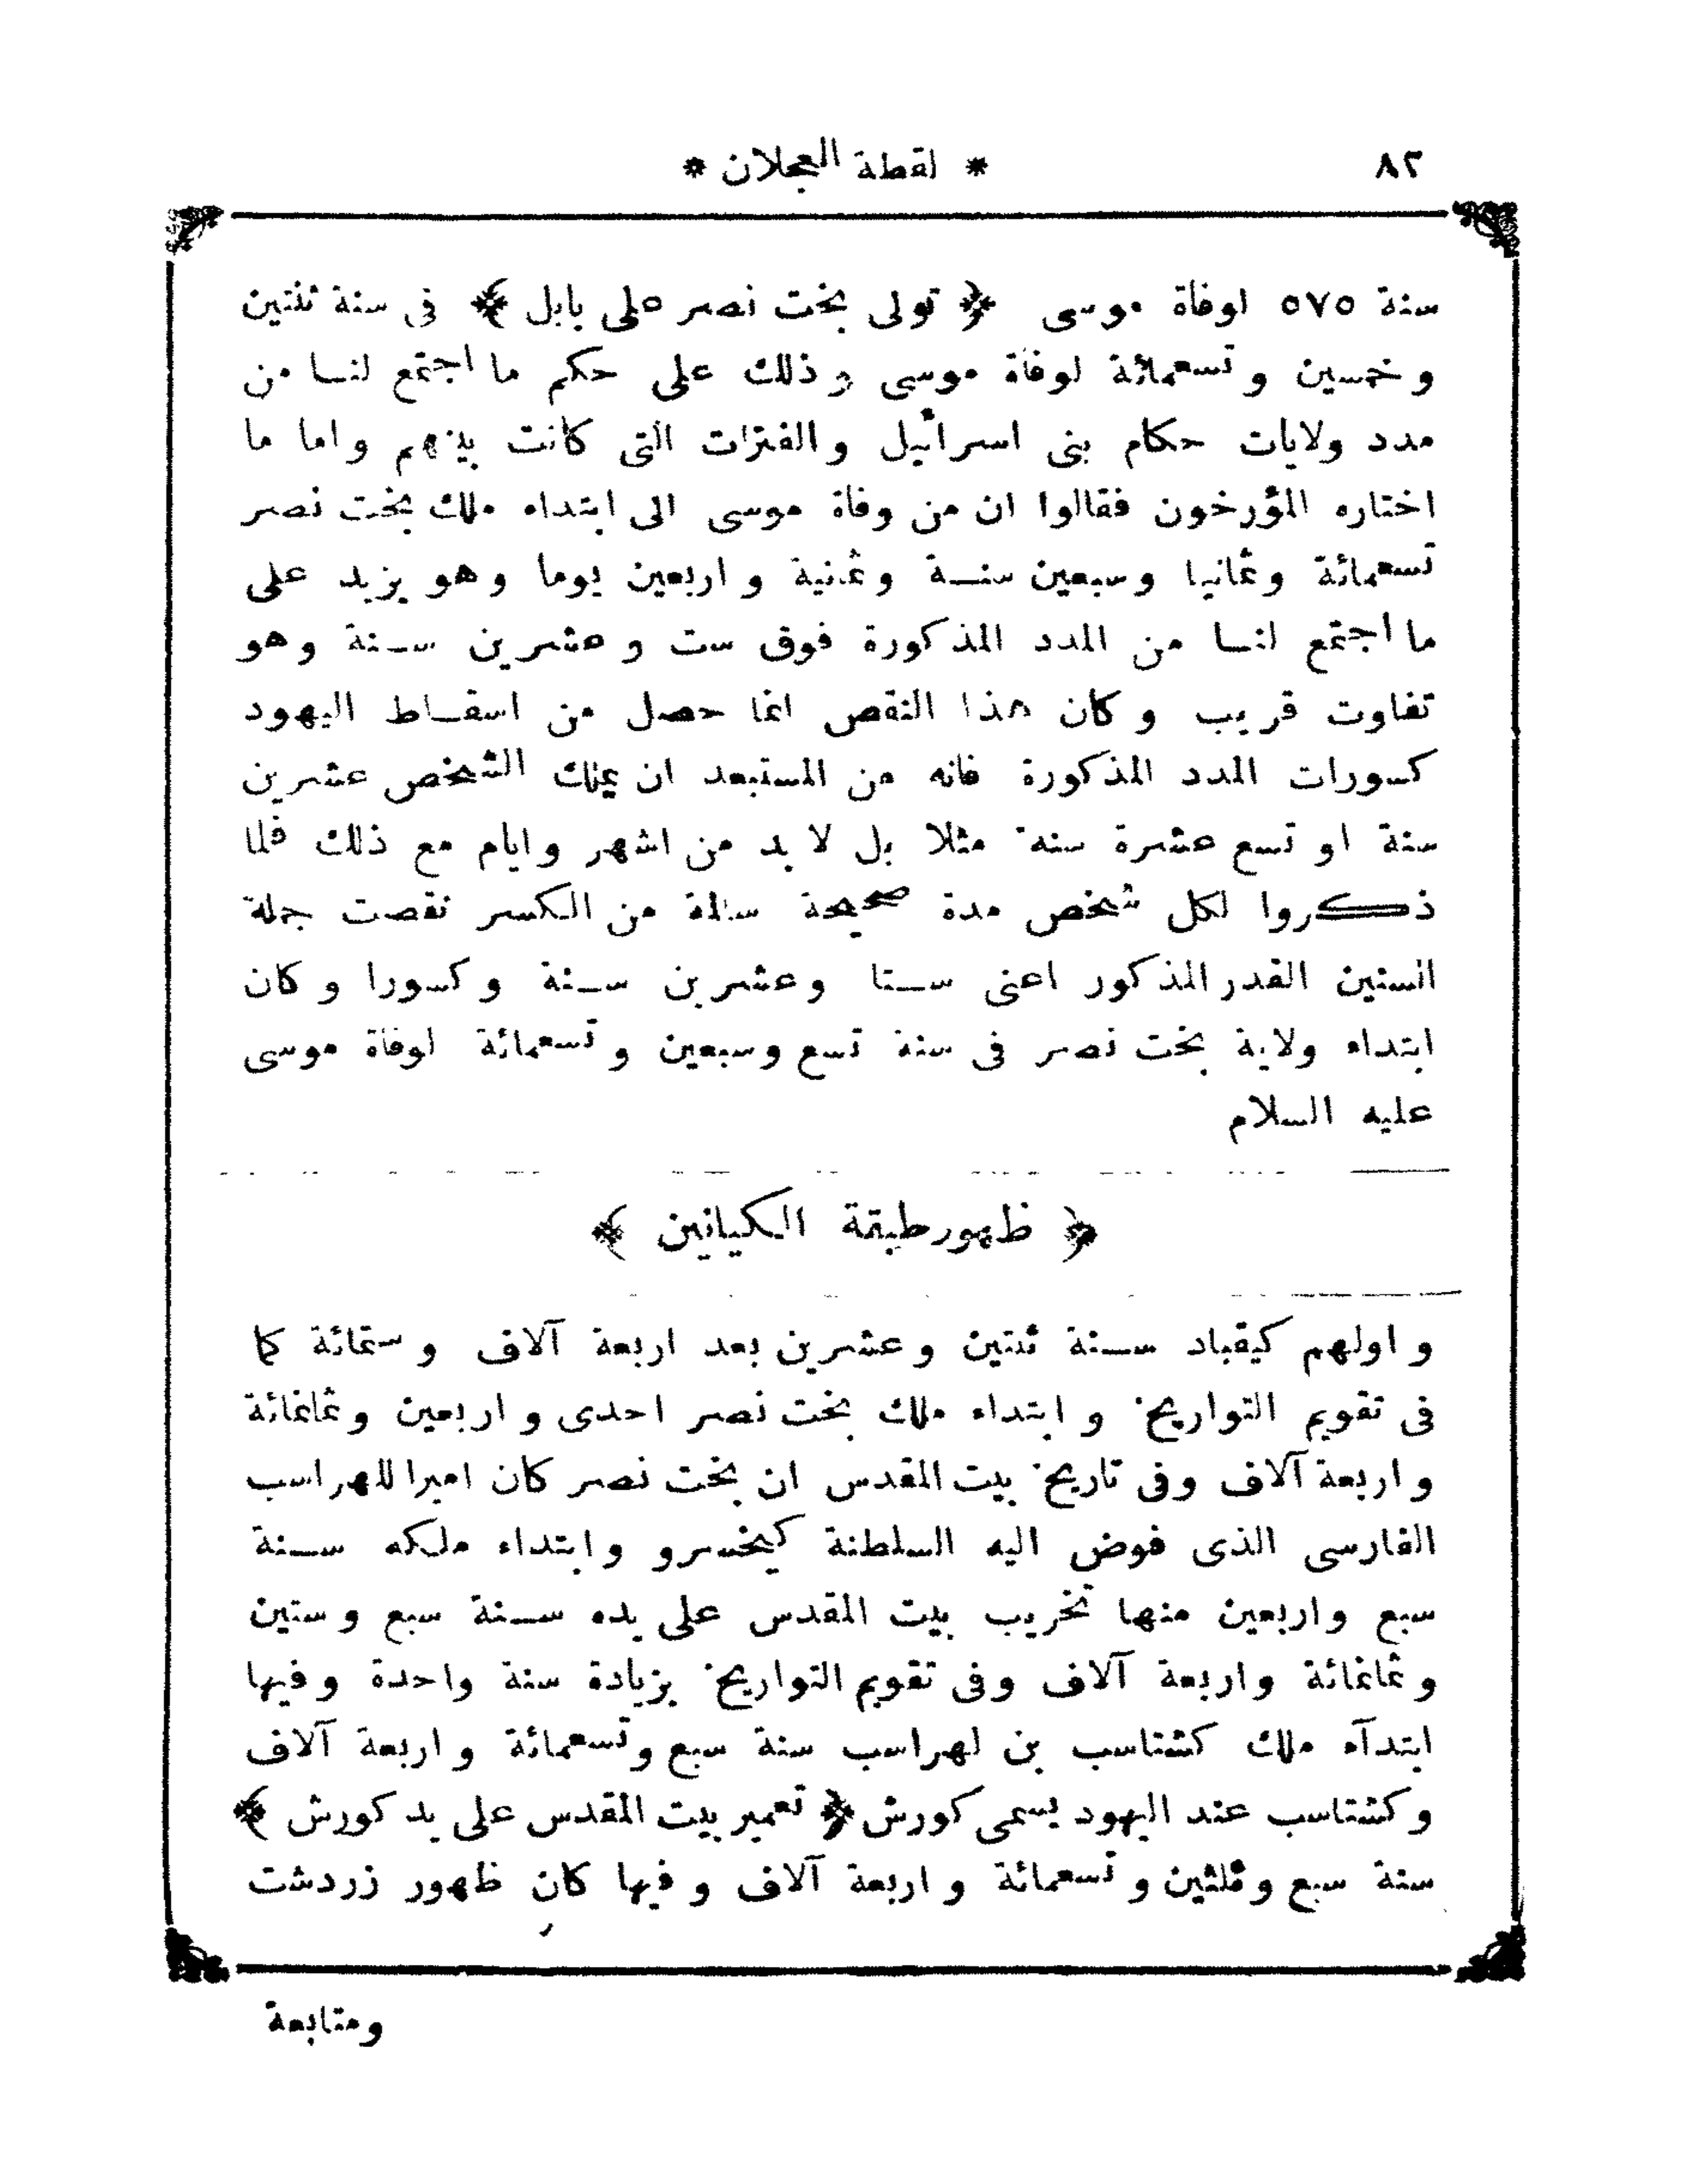 ٨٢ * لقطة العجلان *
سنة ٥٧٥ لوفاة موسى ﴿ تولى بخت نصر على بابل ﴾ فى سنة ثنتين
وخمسين وتسعمائة لوفاة موسى وذلك على حكم ما اجتمع لنا من
مدد ولايات حكام بنى اسرائيل والفترات التى كانت بينهم واما ما
اختاره المؤرخون فقالوا ان من وفاة موسى الى ابتداء ملك بخت نصر
تسعمائة وثمانيا وسبعين سنة وثمنية واربعين يوما وهو يزيد على
ما اجتمع لنا من المدد المذكورة فوق ست وعشرين سنة وهو
تفاوت قريب وكان هذا النقص انما حصل من اسقاط اليهود
كسورات المدد المذكورة فانه من المستبعد ان يملك الشخص عشرين
سنة او تسع عشرة سنة مثلا بل لا بد من اشهر وايام مع ذلك فلما
ذكروا لكل شخص مدة صحيحة سالمة من الكسر نقصت جملة
السنين القدر المذكور اعنى ستا وعشرين سنة وكسورا وكان
ابتداء ولاية بخت نصر فى سنة تسع وسبعين وتسعمائة لوفاة موسى
عليه السلام
﴿ ظهور طبقة الكيانين ﴾
واولهم كيقباد سنة ثنتين وعشرين بعد اربعة آلاف وستمائة كما
فى تقويم التواريخ وابتداء ملك بخت نصر احدى واربعين وثمانمائة
واربعة آلاف وفى تاريخ بيت المقدس ان بخت نصر كان اميرا للهراسب
الفارسى الذى فوض اليه السلطنة كيخسرو وابتداء ملكه سنة
سبع واربعين منها تخريب بيت المقدس على يده سنة سبع وستين
وثمانمائة واربعة آلاف وفى تقويم التواريخ بزيادة سنة واحدة وفيها
ابتدآء ملك كشتاسب بن لهراسب سنة سبع وتسعمائة واربعة آلاف
وكشتاسب عند اليهود يسمى كورش ﴿ تعمير بيت المقدس على يد كورش ﴾
سنة سبع وثلثين وتسعمائة واربعة آلاف وفيها كان ظهور زردشت
ومتابعة